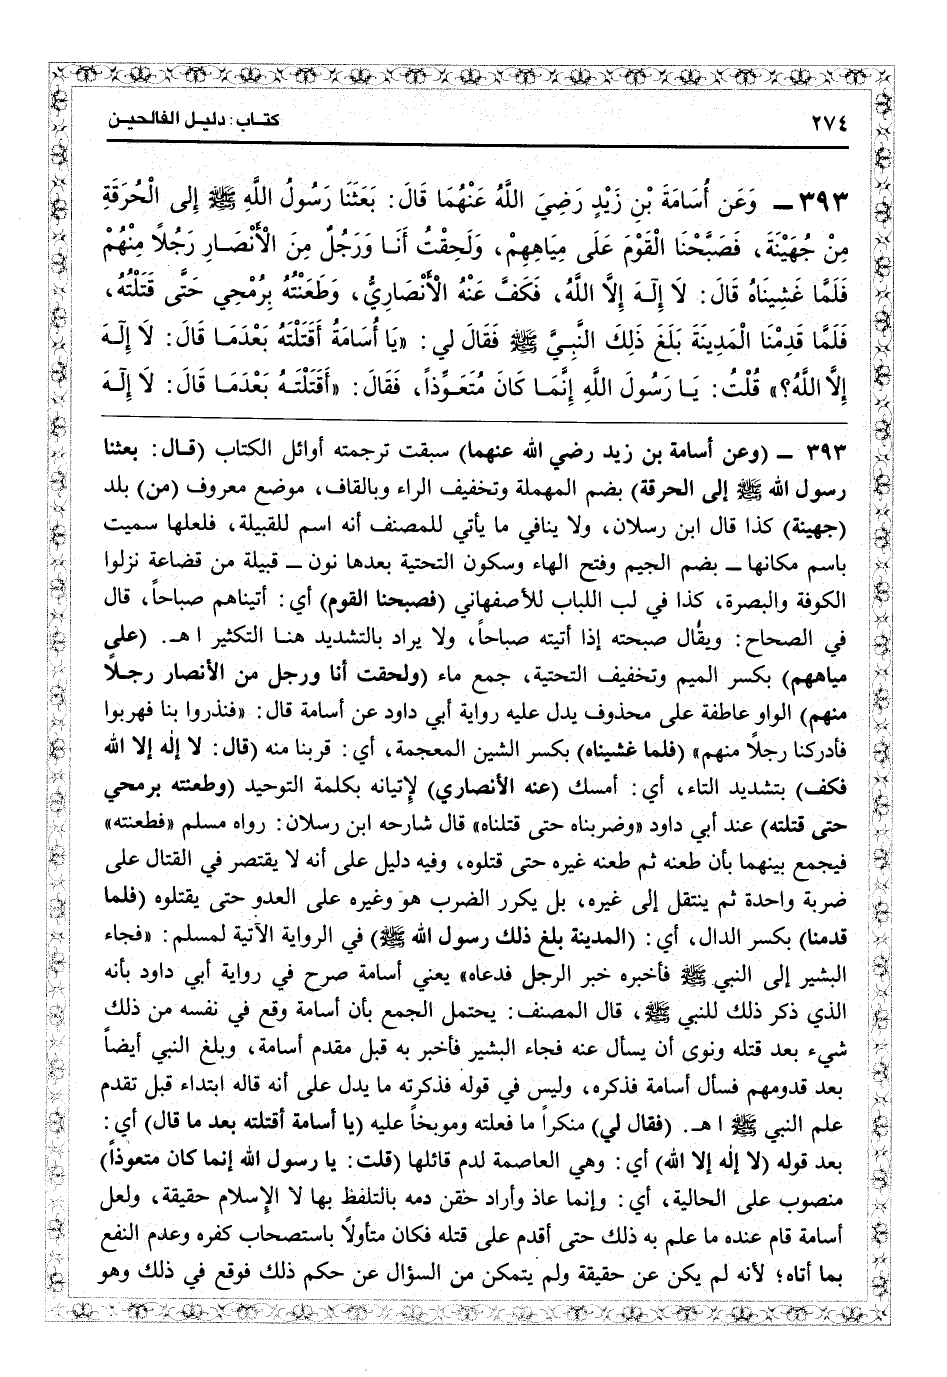 ٢٧٤ كتاب: دليل الفالحين
٣٩٣ ـ وَعَن أُسَامَةَ بْنِ زَيْدٍ رَضِيَ اللَّهُ عَنْهُمَا قَالَ: بَعَثَنَا رَسُولُ اللَّهِ ﷺ إلى الْحُرَقَةِ
مِنْ جُهَيْنَةَ، فَصَبَّحْنَا الْقَوْمَ عَلَى مِيَاهِهِمْ، وَلَحِقْتُ أنَا وَرَجُلٌ مِنَ الْأَنْصَارِ رَجُلاً مِنْهُمْ
فَلَمَّا غَشِينَاهُ قَالَ: لَا إِلٰهَ إِلاَّ اللَّهُ، فَكَفَّ عَنْهُ الْأَنْصَارِيُّ، وَطَعَنْتُهُ بِرُمْحِي حَتَّى قَتَلْتُهُ،
فَلَمَّا قَدِمْنَا الْمَدِينَةَ بَلَغَ ذلِكَ النَّبِيَّ ﷺ فَقَالَ لي: «يَا أُسَامَةُ أَقَتَلْتَهُ بَعْدَمَا قَالَ: لَا إِلٰهَ
إِلاَّ اللَّهُ؟» قُلْتُ: يَا رَسُولَ اللَّهِ إِنَّمَا كَانَ مُتَعَوِّذاً، فَقَالَ: «أَقَتَلْتَهُ بَعْدَمَا قَالَ: لَا إِلٰهَ
٣٩٣ ـ (وعن أسامة بن زيد رضي الله عنهما) سبقت ترجمته أوائل الكتاب (قال: بعثنا
رسول الله ﷺ إلى الحرقة) بضم المهملة وتخفيف الراء وبالقاف، موضع معروف (من) بلد
(جهينة) كذا قال ابن رسلان، ولا ينافي ما يأتي للمصنف أنه اسم للقبيلة، فلعلها سميت
باسم مكانها ـ بضم الجيم وفتح الهاء وسكون التحتية بعدها نون ـ قبيلة من قضاعة نزلوا
الكوفة والبصرة، كذا في لب اللباب للأصفهاني (فصبحنا القوم) أي: أتيناهم صباحاً، قال
في الصحاح: ويقُال صبحته إذا أتيته صباحاً، ولا يراد بالتشديد هنا التكثير اهـ. (على
مياههم) بكسر الميم وتخفيف التحتية، جمع ماء (ولحقت أنا ورجل من الأنصار رجلاً
منهم) الواو عاطفة على محذوف يدل عليه رواية أبي داود عن أسامة قال: «فنذروا بنا فهربوا
فأدركنا رجلاً منهم» (فلما غشيناه) بكسر الشين المعجمة، أي: قربنا منه (قال: لا إلٰه إلا الله
فكف) بتشديد التاء، أي: أمسك (عنه الأنصاري) لإتيانه بكلمة التوحيد (وطعنته برمحي
حتى قتلته) عند أبي داود «وضربناه حتى قتلناه» قال شارحه ابن رسلان: رواه مسلم «فطعنته»
فيجمع بينهما بأن طعنه ثم طعنه غيره حتى قتلوه، وفيه دليل على أنه لا يقتصر في القتال على
ضربة واحدة ثم ينتقل إلى غيره، بل يكرر الضرب هو وغيره على العدو حتى يقتلوه (فلما
قدمنا) بكسر الدال، أي: (المدينة بلغ ذلك رسول الله ﷺ) في الرواية الآتية لمسلم: «فجاء
البشير إلى النبي ﷺ فأخبره خبر الرجل فدعاه» يعني أسامة صرح في رواية أبي داود بأنه
الذي ذكر ذلك للنبي ﷺ، قال المصنف: يحتمل الجمع بأن أسامة وقع في نفسه من ذلك
شيء بعد قتله ونوى أن يسأل عنه فجاء البشير فأخبر به قبل مقدم أسامة، وبلغ النبي أيضاً
بعد قدومهم فسأل أسامة فذكره، وليس في قوله فذكرته ما يدل على أنه قاله ابتداء قبل تقدم
علم النبي ﷺ اهـ. (فقال لي) منكراً ما فعلته وموبخاً عليه (يا أسامة أقتلته بعد ما قال) أي:
بعد قوله (لا إلٰه إلا الله) أي: وهي العاصمة لدم قائلها (قلت: يا رسول الله إنما كان متعوذاً)
منصوب على الحالية، أي: وإنما عاذ وأراد حقن دمه بالتلفظ بها لا الإسلام حقيقة، ولعل
أسامة قام عنده ما علم به ذلك حتى أقدم على قتله فكان متأولاً باستصحاب كفره وعدم النفع
بما أتاه؛ لأنه لم يكن عن حقيقة ولم يتمكن من السؤال عن حكم ذلك فوقع في ذلك وهو